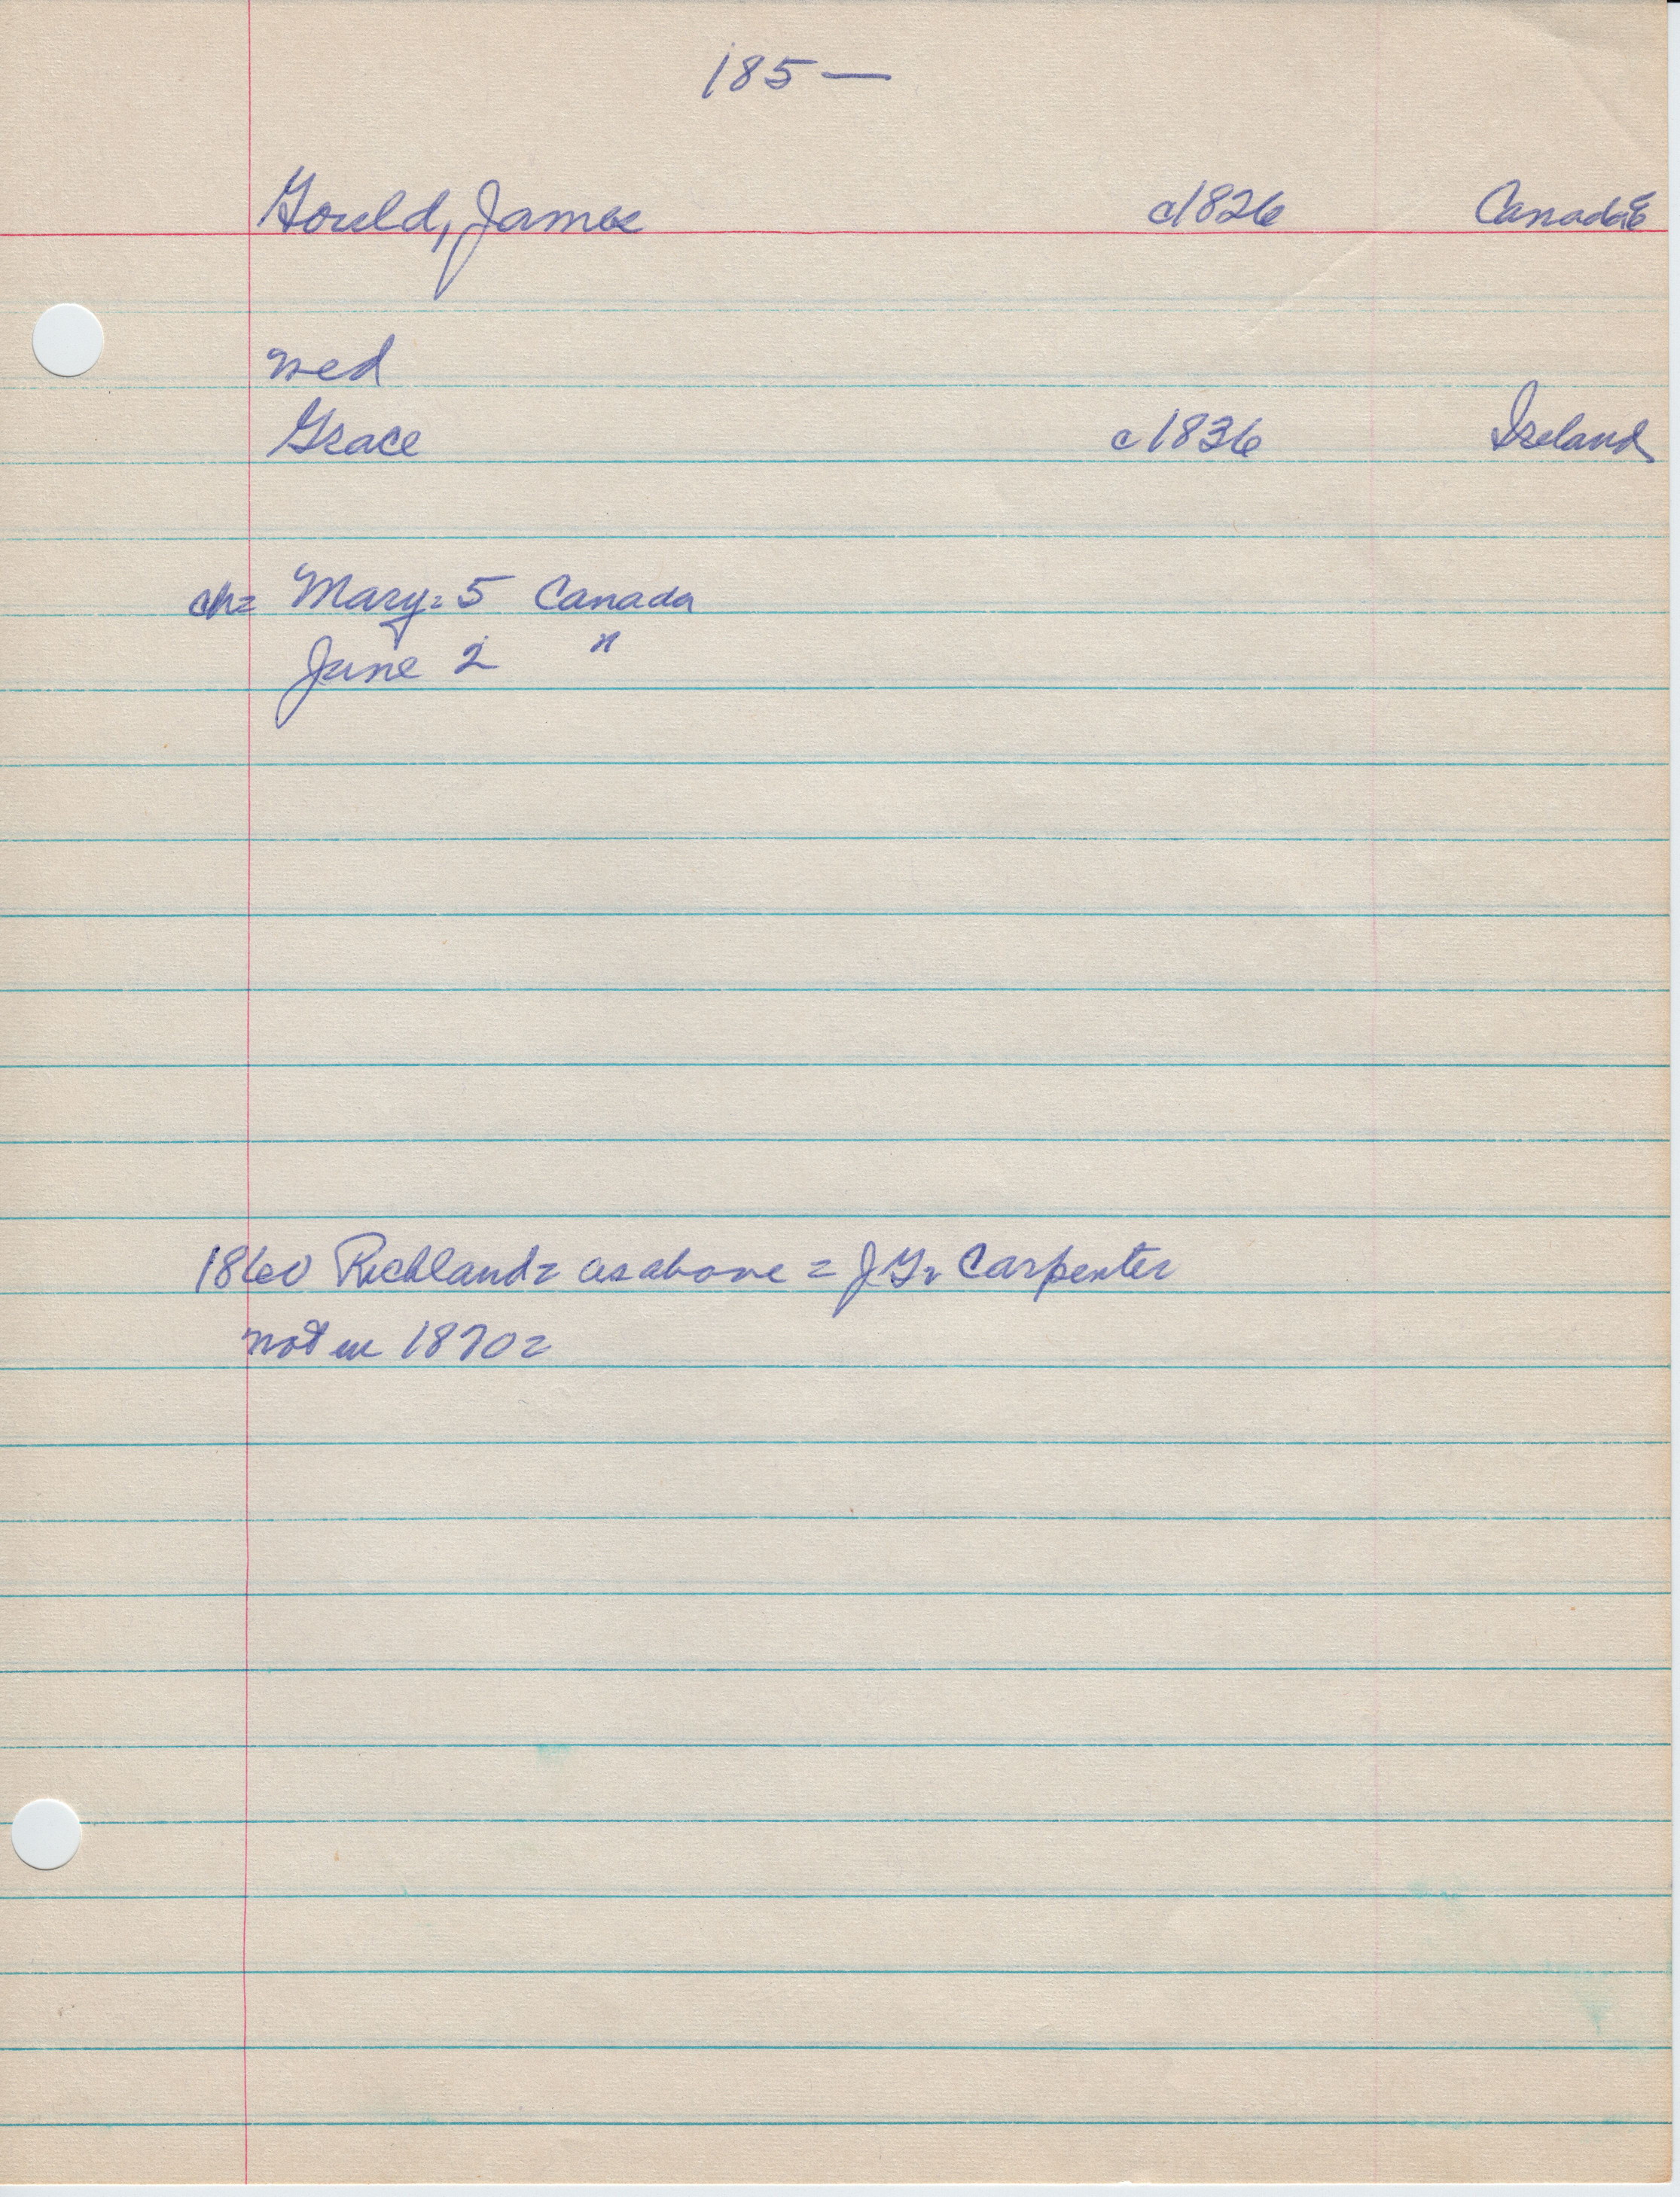 185—
Gould, James c1826 Canada E
wed
Grace c1836 Ireland
ch= Mary= 5 Canada
Jane 2 "
1860 Richland= as above = JG= Carpenter
not in 1870=